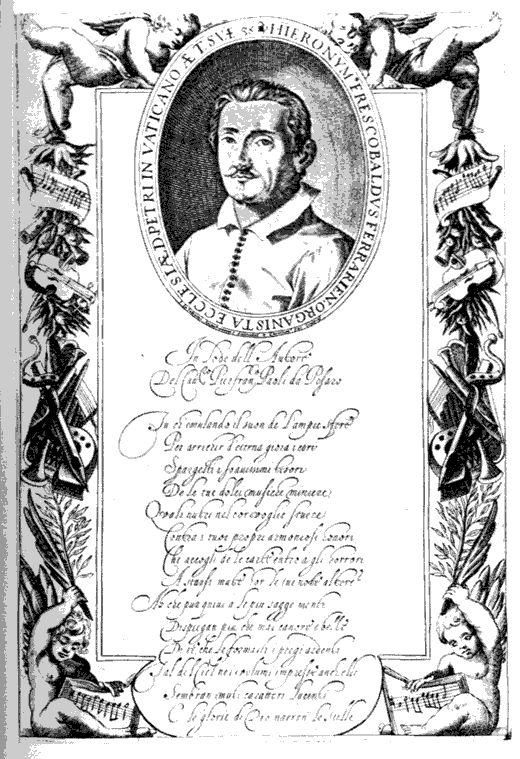 HIERONYMᵒ FRESCOBALDVS FERRARIEN. ORGANISTA ECCLESIÆ D. PETRI IN VATICANO ÆT. SVÆ 36
In lode dell'Autore
Del Piefranᶜᵒ Paoli da Pesaro
Tu ch'emulando il suon de l'ampie sfere
Per arricchir d'eterna gioia i cori
Spargesti i soavissimi tesori
De le tue dolci musiche miniere
nutri nel cor voglie severe
Contra i tuoi proprii armoniosi honori
Che accogli de le carte entro a gli horrori
le tue note altere
Ah che pur quivi a le più sagge menti
Dispiegan più che mai canoro e bello
Dir che le formasti i pregi ardenti
Tal del Ciel nei volumi impresse anch'elle
Sembran muti caratteri lucenti
E le glorie di Dio narran le stelle